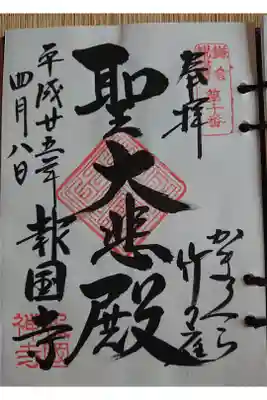 奉拝
鎌倉
観音
第十番
かまくら
竹の庭
聖大悲殿
平成廿五年
四月八日
報国寺